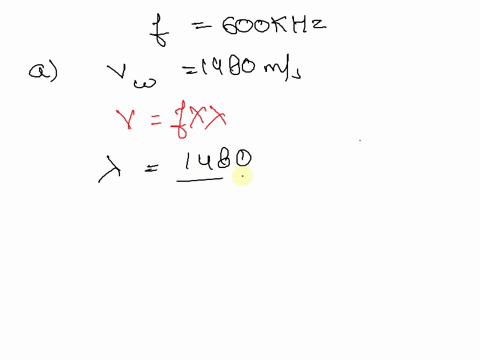 f = 600KHz
a) Vω = 1480 m/s
v = f×λ
λ = 1480